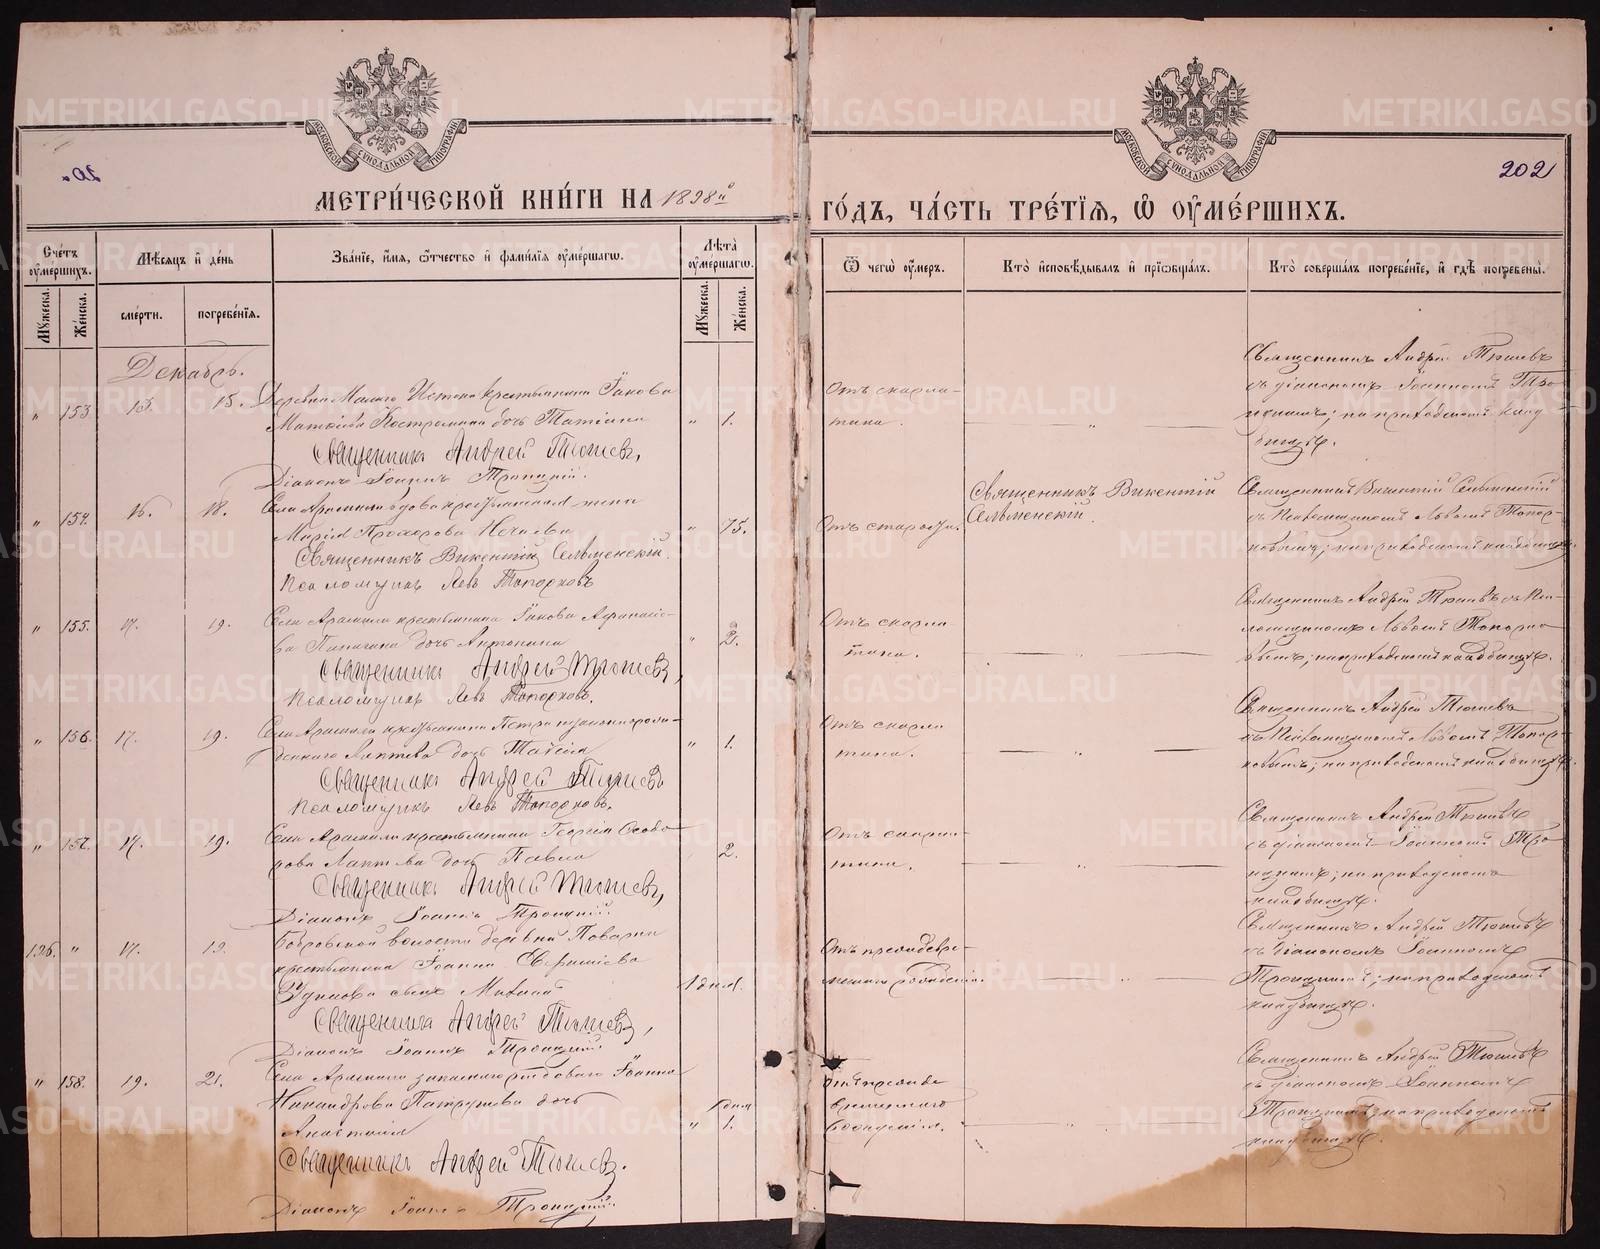 МЕТРИ́ЧЕСКОЙ КНИ́ГИ НА 1898й
ГО́ДЪ, ЧА́СТЬ ТРЕ́ТЇѦ, Ѽ ОУМЕ́РШИХЪ.
202
Сче́тъ оуме́ршихъ.
Мѣ́сяцъ и день
Зва́нїе, и́мя, ѻ́тчество и фами́лїя оуме́ршагѡ.
Лѣ́та оуме́ршагѡ.
Ѿ чегѡ̀ оу́меръ.
Кто̀ исповѣ́дывалъ и прїѡбща́лъ.
Кто̀ соверша́лъ погребе́нїе, и гдѣ̀ погребены̀.
Му́жеска.
Же́нска.
сме́рти.
погребе́нїя.
Му́жеска.
Же́нска.
Декабрь.
" 153. 13. 15. Деревни Малаго Истока крестьянина Іакова
Костромина дочь Татіана " 1.
Священникъ Андрей Тюшевъ,
Діаконъ Іоаннъ Троицкій.
Отъ скарла-
тина. "
Священникъ Андрей Тюшевъ
съ діакономъ Іоанномъ Тро
ицкимъ; на приходскомъ клад
бищѣ.
" 154. 16. 18. Села Арамили вдова крестьянская жена
Марія Прохорова Нечаева " 75.
Священникъ Викентій Сельменскій.
Псаломщикъ Левъ Топорковъ
Отъ старости.
Священникъ Викентій
Сельменскій.
Священникъ Викентій Сельменскій
съ Псаломщикомъ Львомъ Топор-
ковымъ; на приходскомъ кладбищѣ.
" 155. 17. 19. Села Арамили крестьянина Іакова Афанасіе-
ва дочь Антонина " 2.
Священникъ Андрей Тюшевъ,
Псаломщикъ Левъ Топорковъ.
Отъ скарла
тина. "
Священникъ Андрей Тюшевъ съ Пса-
ломщикомъ Львомъ Топорко
вымъ; на приходскомъ кладбищѣ.
" 156. 17. 19. Села Арамили крестьянина Петра
Лаптева дочь Таисія " 1.
Священникъ Андрей Тюшевъ
Псаломщикъ Левъ Топорковъ.
Отъ скарла
тина. "
Священникъ Андрей Тюшевъ
съ Псаломщикомъ Львомъ Топор-
ковымъ; на приходскомъ кладбищѣ.
" 157. 17. 19. Села Арамили крестьянина Георгія Ѳеодо-
рова Лаптева дочь Павла 2.
Священникъ Андрей Тюшевъ,
Діаконъ Іоаннъ Троицкій.
Отъ скарла-
тина. "
Священникъ Андрей Тюшевъ
съ діакономъ Іоанномъ Тро
ицкимъ; на приходскомъ
кладбищѣ.
126. " 17. 19. Бобровской волости деревни
крестьянина Іоанна
сынъ 1 дня.
Священникъ Андрей Тюшевъ,
Діаконъ Іоаннъ Троицкій.
Отъ преждевре-
меннаго рожденія. "
Священникъ Андрей Тюшевъ
съ діакономъ Іоанномъ
Троицкимъ; на приходскомъ
кладбищѣ.
" 158. 19. 21. Села Арамили запаснаго рядоваго Іоанна
Никандрова Патрушева дочь
Анастасія " 1 дня
Священникъ Андрей Тюшевъ.
Діаконъ Іоаннъ Троицкій.
Отъ прежде
временнаго
рожденія. "
Священникъ Андрей Тюшевъ
съ діакономъ Іоанномъ
Троицкимъ; на приходскомъ
кладбищѣ.
METRIKI.GASO-URAL.RU